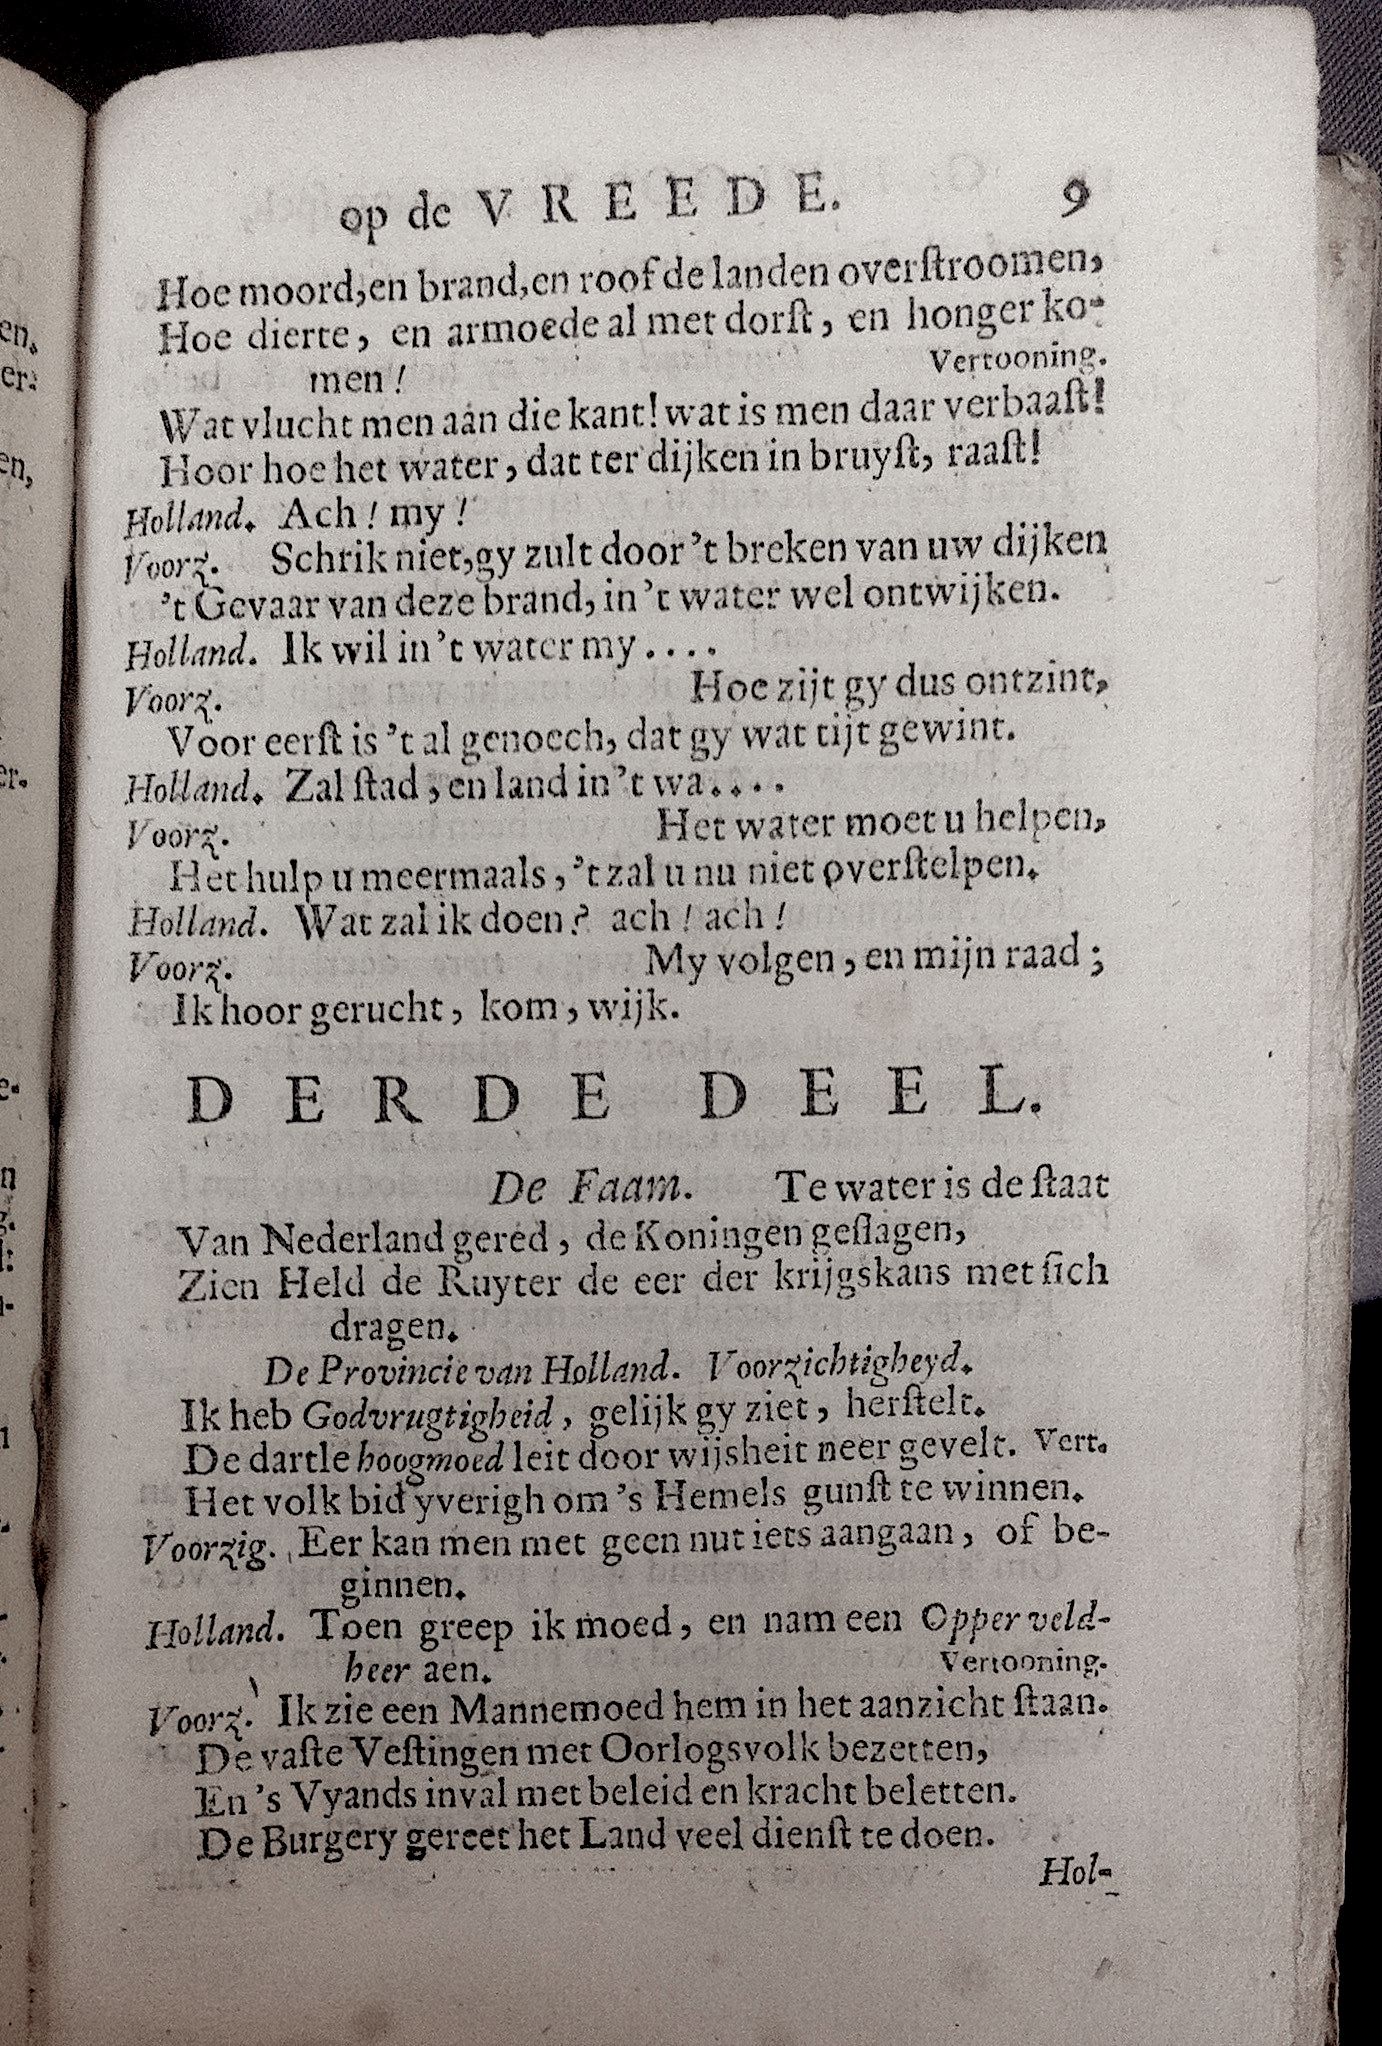 op de VREEDE. 9
Hoe moord, en brand, en roof de landen overſtroomen,
Hoe dierte, en armoede al met dorſt, en honger ko-
men! Vertooning.
Wat vlucht men aan die kant! wat is men daar verbaaſt!
Hoor hoe het water, dat ter dijken in bruyſt, raaſt!
Holland. Ach! my!
Voorz. Schrik niet, gy zult door 't breken van uw dijken
't Gevaar van deze brand, in 't water wel ontwijken.
Holland. Ik wil in 't water my . . . .
Voorz. Hoe zijt gy dus ontzint,
Voor eerſt is 't al genoech, dat gy wat tijt gewint.
Holland. Zal ſtad, en land in 't wa . . . .
Voorz. Het water moet u helpen,
Het hulp u meermaals, 't zal u nu niet overſtelpen.
Holland. Wat zal ik doen? ach! ach!
Voorz. My volgen, en mijn raad;
Ik hoor gerucht, kom, wijk.
DERDE DEEL.
De Faam. Te water is de ſtaat
Van Nederland gered, de Koningen geſlagen,
Zien Held de Ruyter de eer der krijgskans met ſich
dragen.
De Provincie van Holland. Voorzichtigheyd.
Ik heb Godvrugtigheid, gelijk gy ziet, herſtelt.
De dartle hoogmoed leit door wijsheit neer gevelt. Vert.
Het volk bid yverigh om 's Hemels gunſt te winnen.
Voorzig. Eer kan men met geen nut iets aangaan, of be-
ginnen.
Holland. Toen greep ik moed, en nam een Opper veld-
heer aen. Vertooning.
Voorz. Ik zie een Mannemoed hem in het aanzicht ſtaan.
De vaſte Veſtingen met Oorlogsvolk bezetten,
En 's Vyands inval met beleid en kracht beletten.
De Burgery gereet het Land veel dienſt te doen.
Hol-
en,
er.
en,
er.